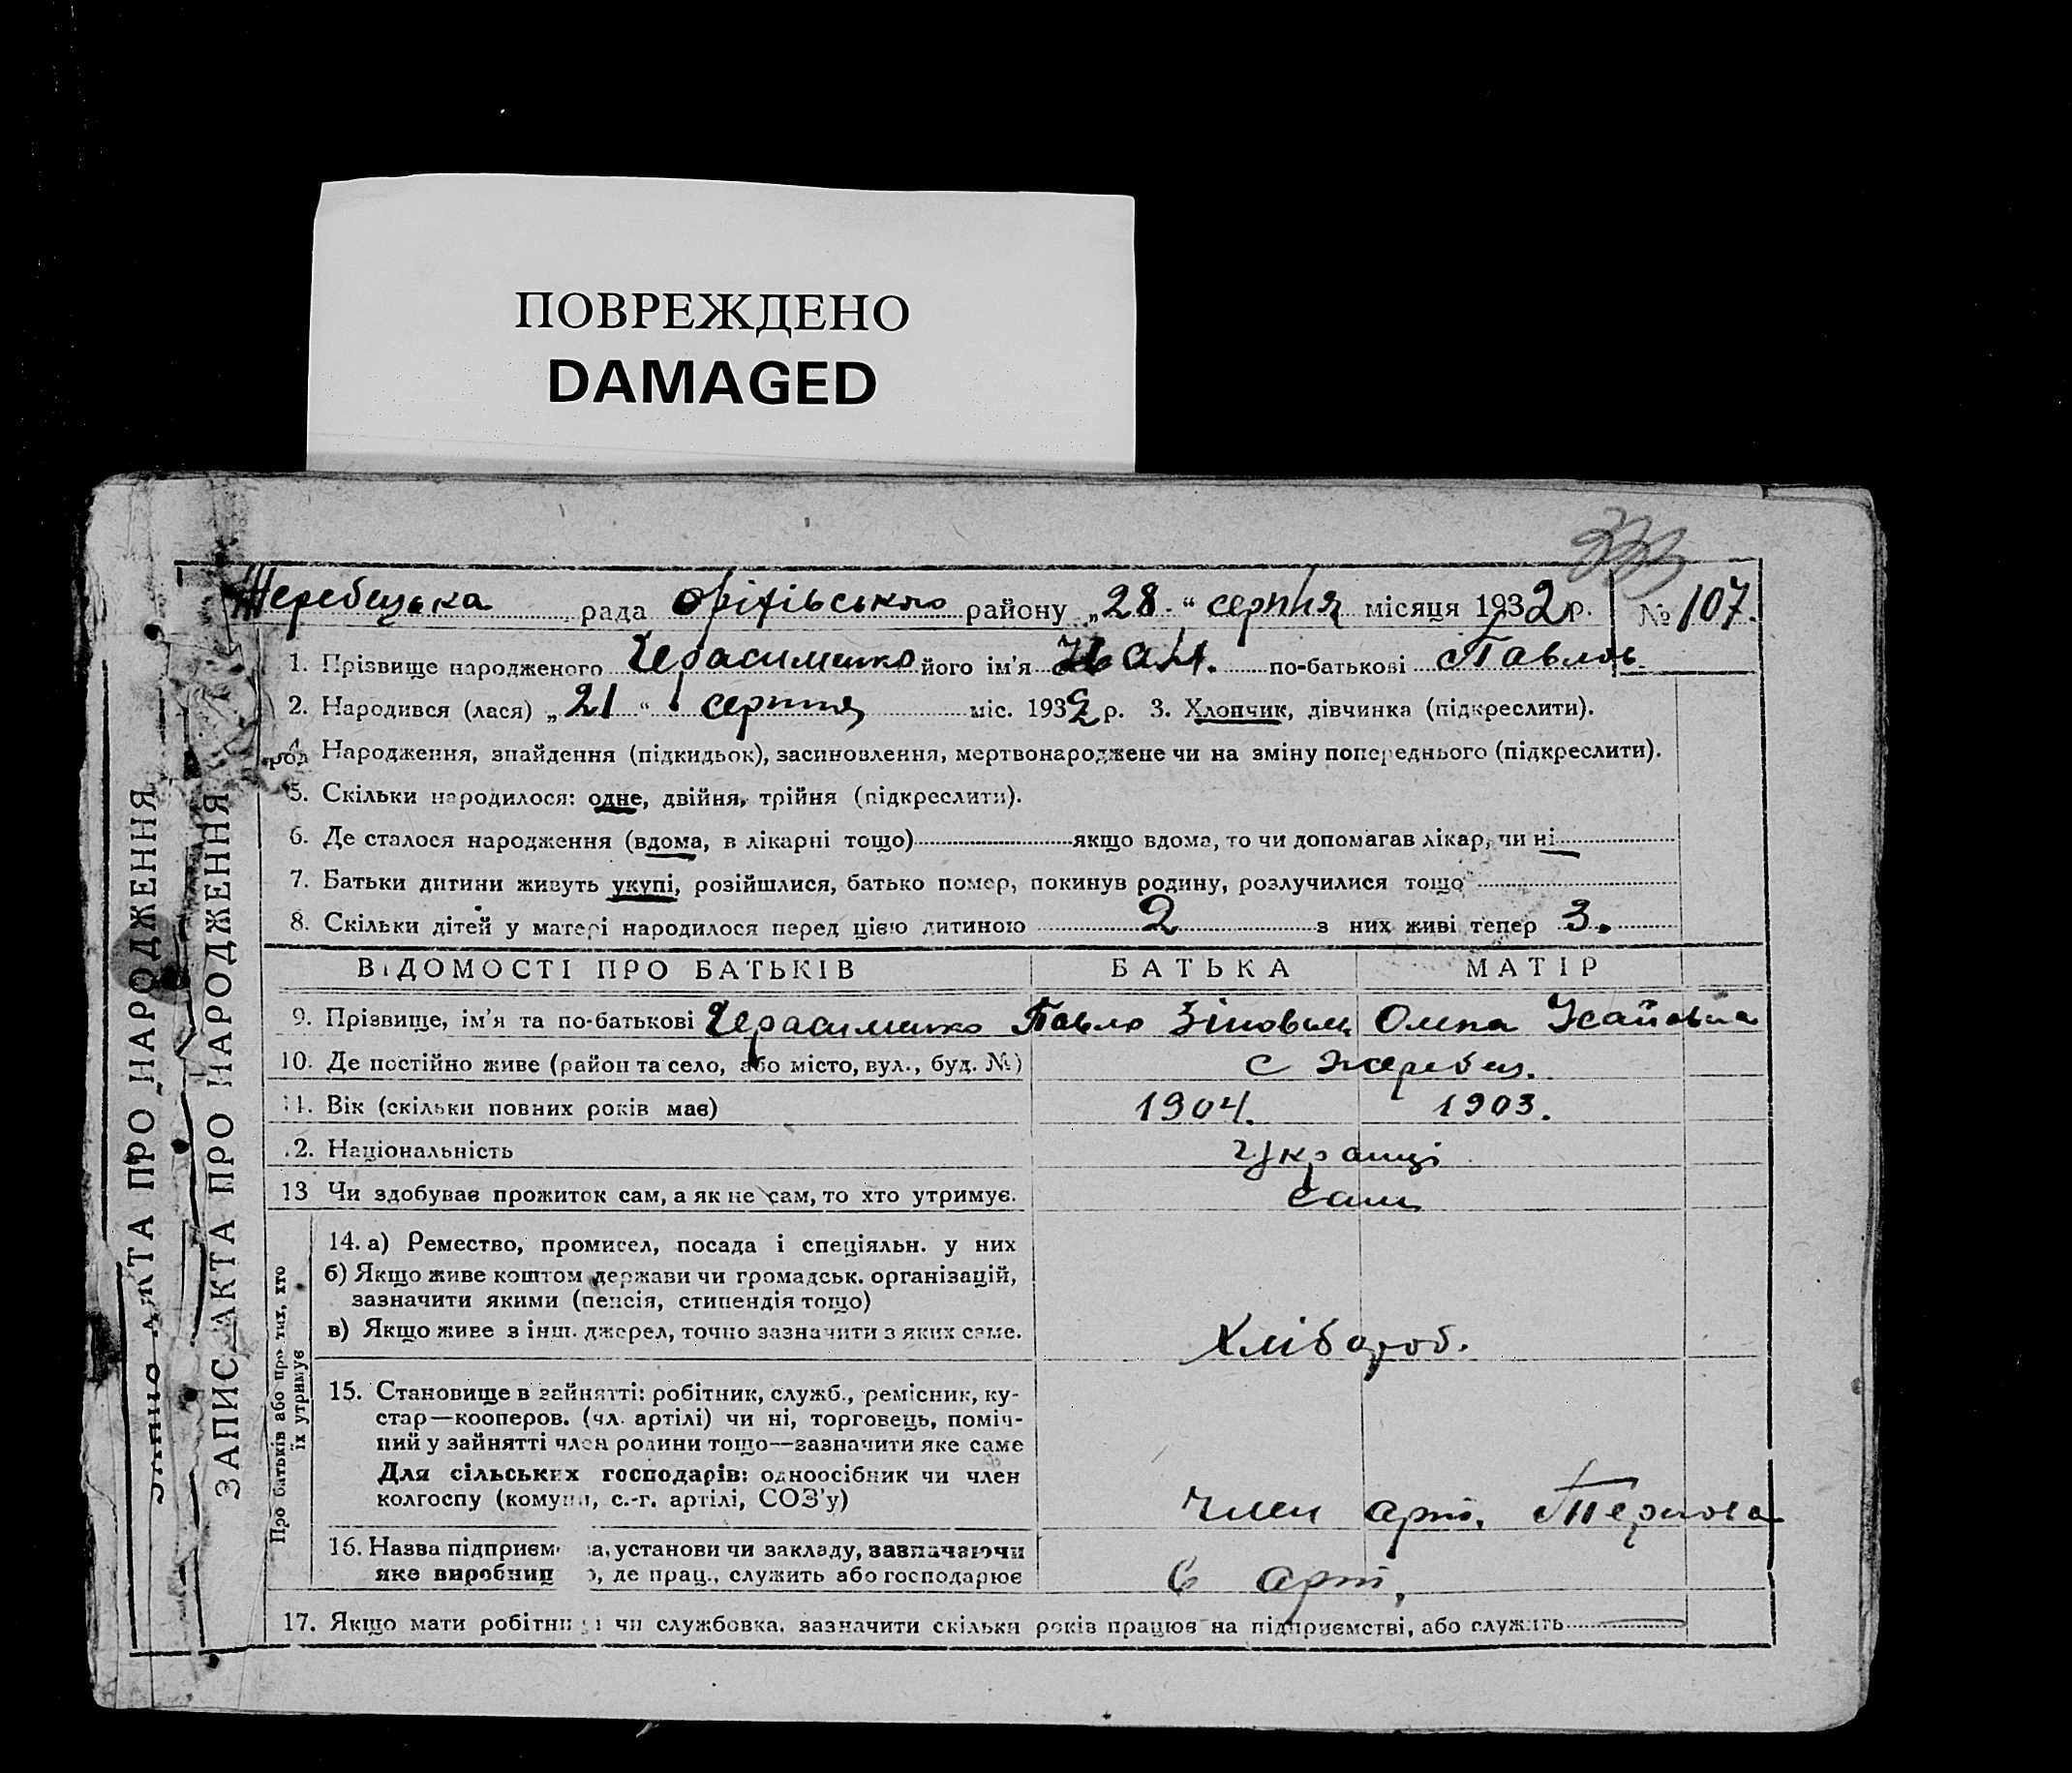 ПОВРЕЖДЕНО
DAMAGED
333
Жеребецька рада Оріхівського району „28" серпня місяця 1932 р. № 107.
1. Прізвище народженого Герасименко його ім'я Іван. по-батькові Павлов.
2. Народився (лася) „21" серпня міс. 1932 р. 3. Хлопчик, дівчинка (підкреслити).
4. Народження, знайдення (підкидьок), засиновлення, мертвонароджене чи на зміну попереднього (підкреслити).
5. Скільки народилося: одне, двійня, трійня (підкреслити).
6. Де сталося народження (вдома, в лікарні тощо) якщо вдома, то чи допомагав лікар, чи ні
7. Батьки дитини живуть укупі, розійшлися, батько помер, покинув родину, розлучилися тощо
8. Скільки дітей у матері народилося перед цією дитиною 2 з них живі тепер 3.
ВІДОМОСТІ ПРО БАТЬКІВ БАТЬКА МАТІР
9. Прізвище, ім'я та по-батькові Герасименко Павло Зіновьич Олена Ісайовна
10. Де постійно живе (район та село, або місто, вул., буд. №) с Жеребец.
11. Вік (скільки повних років має) 1904. 1903.
12. Національність Українці
13 Чи здобував прожиток сам, а як не сам, то хто утримує. сами
Про батьків або про тих, хто їх утримує
14. а) Ремество, промисел, посада і спеціяльн. у них
б) Якщо живе коштом держави чи громадськ. організацій,
зазначити якими (пенсія, стипендія тощо)
в) Якщо живе з інш. джерел, точно зазначити з яких саме. Хлібороб.
15. Становище в зайнятті: робітник, служб., ремісник, ку-
стар—кооперов. (чл. артілі) чи ні, торговець, поміч-
ний у зайнятті член родини тощо—зазначити яке саме
Для сільських господарів: одноосібник чи член
колгоспу (комуни, с.-г. артілі, СОЗ'у) член арт.
16. Назва підприєм а, установи чи закладу, зазначаючи
яке виробниц о, де прац., служить або господарює в арт,
17. Якщо мати робітни чи службовка, зазначити скільки років працює на підприємстві, або служить
ЗАПИС АКТА ПРО НАРОДЖЕННЯ
АКТА ПРО НАРОДЖЕННЯ